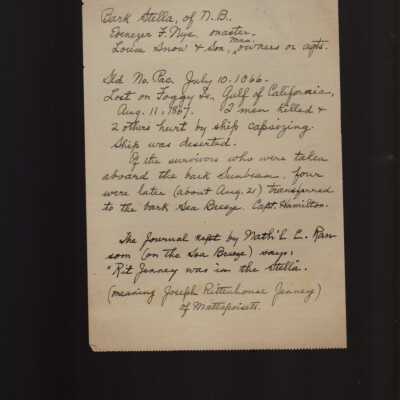 Bark Stella, of N.B.
Ebenezer F. Nye, master.
Loum Snow & Son, owners or agts.
Sld No. Pac. July 10. 1866.
Lost on Foggy Is., Gulf of California,
Aug. 11, 1867. 2 men killed &
2 others hurt by ship capsizing.
Ship was deserted.
Of the survivors who were taken
aboard the bark Sunbeam, four
were later (about Aug. 21) transferred
to the bark Sea Breeze, Capt. Hamilton.
The Journal kept by Nath'l C. Ran-
som (on the Sea Breeze) says:
"Rit Jenney was in the Stella".
(meaning Joseph Rittenhouse Jenney)
of Mattapoisett.